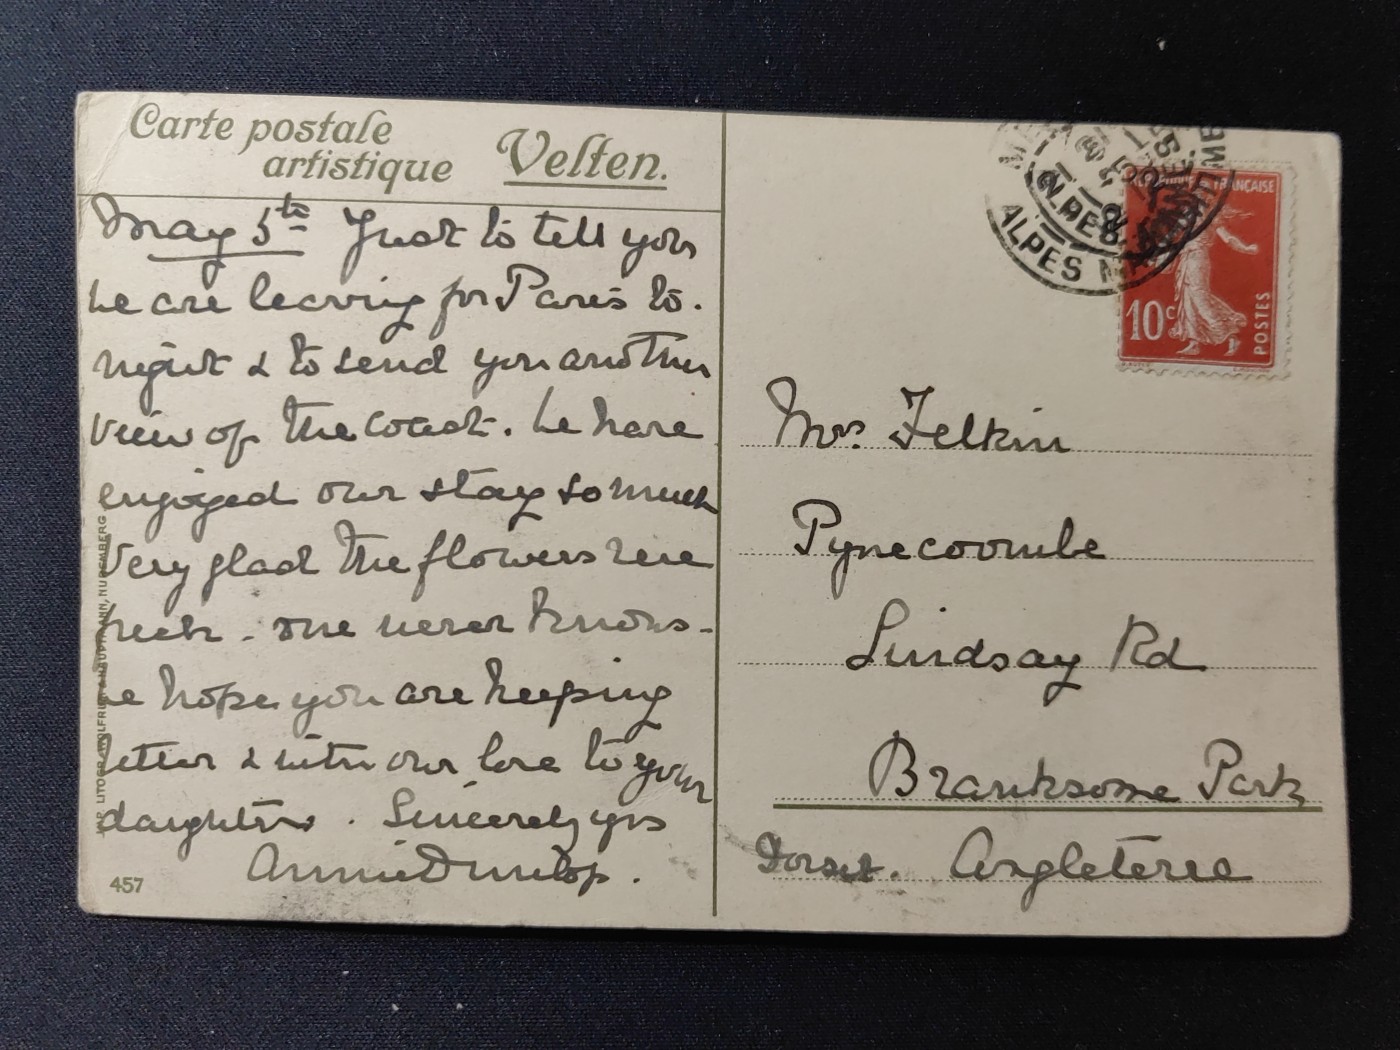 Carte postale
artistique Velten.
May 5th Just to tell you
we are leaving for Paris to-
night & to send you another
view of the coast. We have
enjoyed our stay so much
Very glad the flowers were
fresh - one never knows -
We hope you are keeping
better & with our love to your
daughters. Sincerely yrs
Annie Dunlop.
457
NUREMBERG
RÉPUBLIQUE FRANÇAISE
10c
POSTES
ALPES
Mrs. Felkin
Pynecoombe
Lindsay Rd
Branksome Park
Dorset. Angleterre